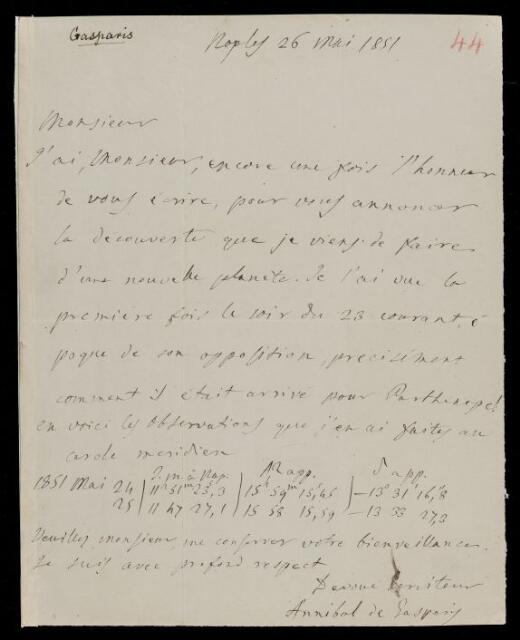 Gasparis
Naples 26 Mai 1851
44
Monsieur
J'ai, Monsieur, encore une fois l'honneur
de vous écrire, pour vous annoncer
la decouverte que je viens de faire
d'une nouvelle planete. Je l'ai vue la
première fois le soir du 23 courant, é
poque de son opposition, precisément
comment il était arrivé pour Parthenope!
en voici les observations que j'en ai faites au
cercle meridien
T. m. à Nap. R app. δ app.
1851 Mai 24 11h 51m 23,3 15h 59m 15,45 —13° 31' 16,8
25 11 47 27,1 15 58 15,59 —13 33 27,3
Veuillez monsieur, me conserver votre bienveillance.
Je suis avec profond respect
Devoué serviteur
Annibal de Gasparis